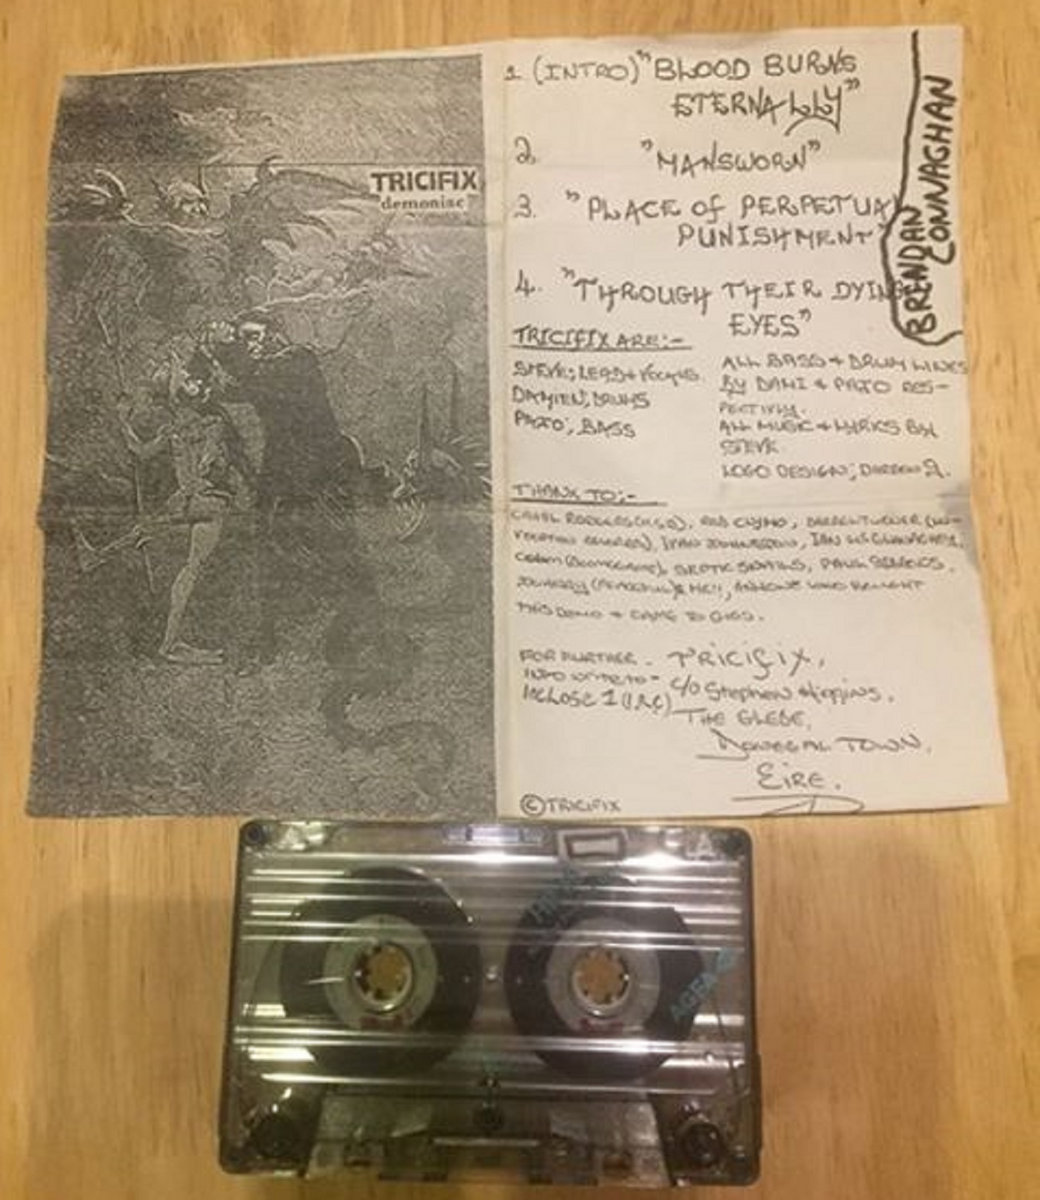 TRICIFIX
"demoniac"
1 (INTRO) "BLOOD BURNS
ETERNALLY"
2. "MANSWORN"
3. "PLACE OF PERPETUAL
PUNISHMENT"
4. "THROUGH THEIR DYING
EYES"
BRENDAN
CONNAGHAN
TRICIFIX ARE:-
STEVE; LEAD + VOCALS.
DAMIEN; DRUMS
PATO; BASS
ALL BASS + DRUM LINES
BY DAMI & PATO RES-
PECTIVLY.
ALL MUSIC + LYRICS BY
STEVE
LOGO DESIGN; DARREN
THANX TO:-
ROB CLYMO,
IAN
SEPTIC PAUL
ANYONE WHO BOUGHT
THIS DEMO + CAME TO GIGS.
FOR FURTHER -
INFO WRITE TO -
INCLOSE 1 (IRC)
TRICIFIX,
C/O Stephen Higgins,
THE GLEBE,
DONEGAL TOWN,
EIRE.
©TRICIFIX
A